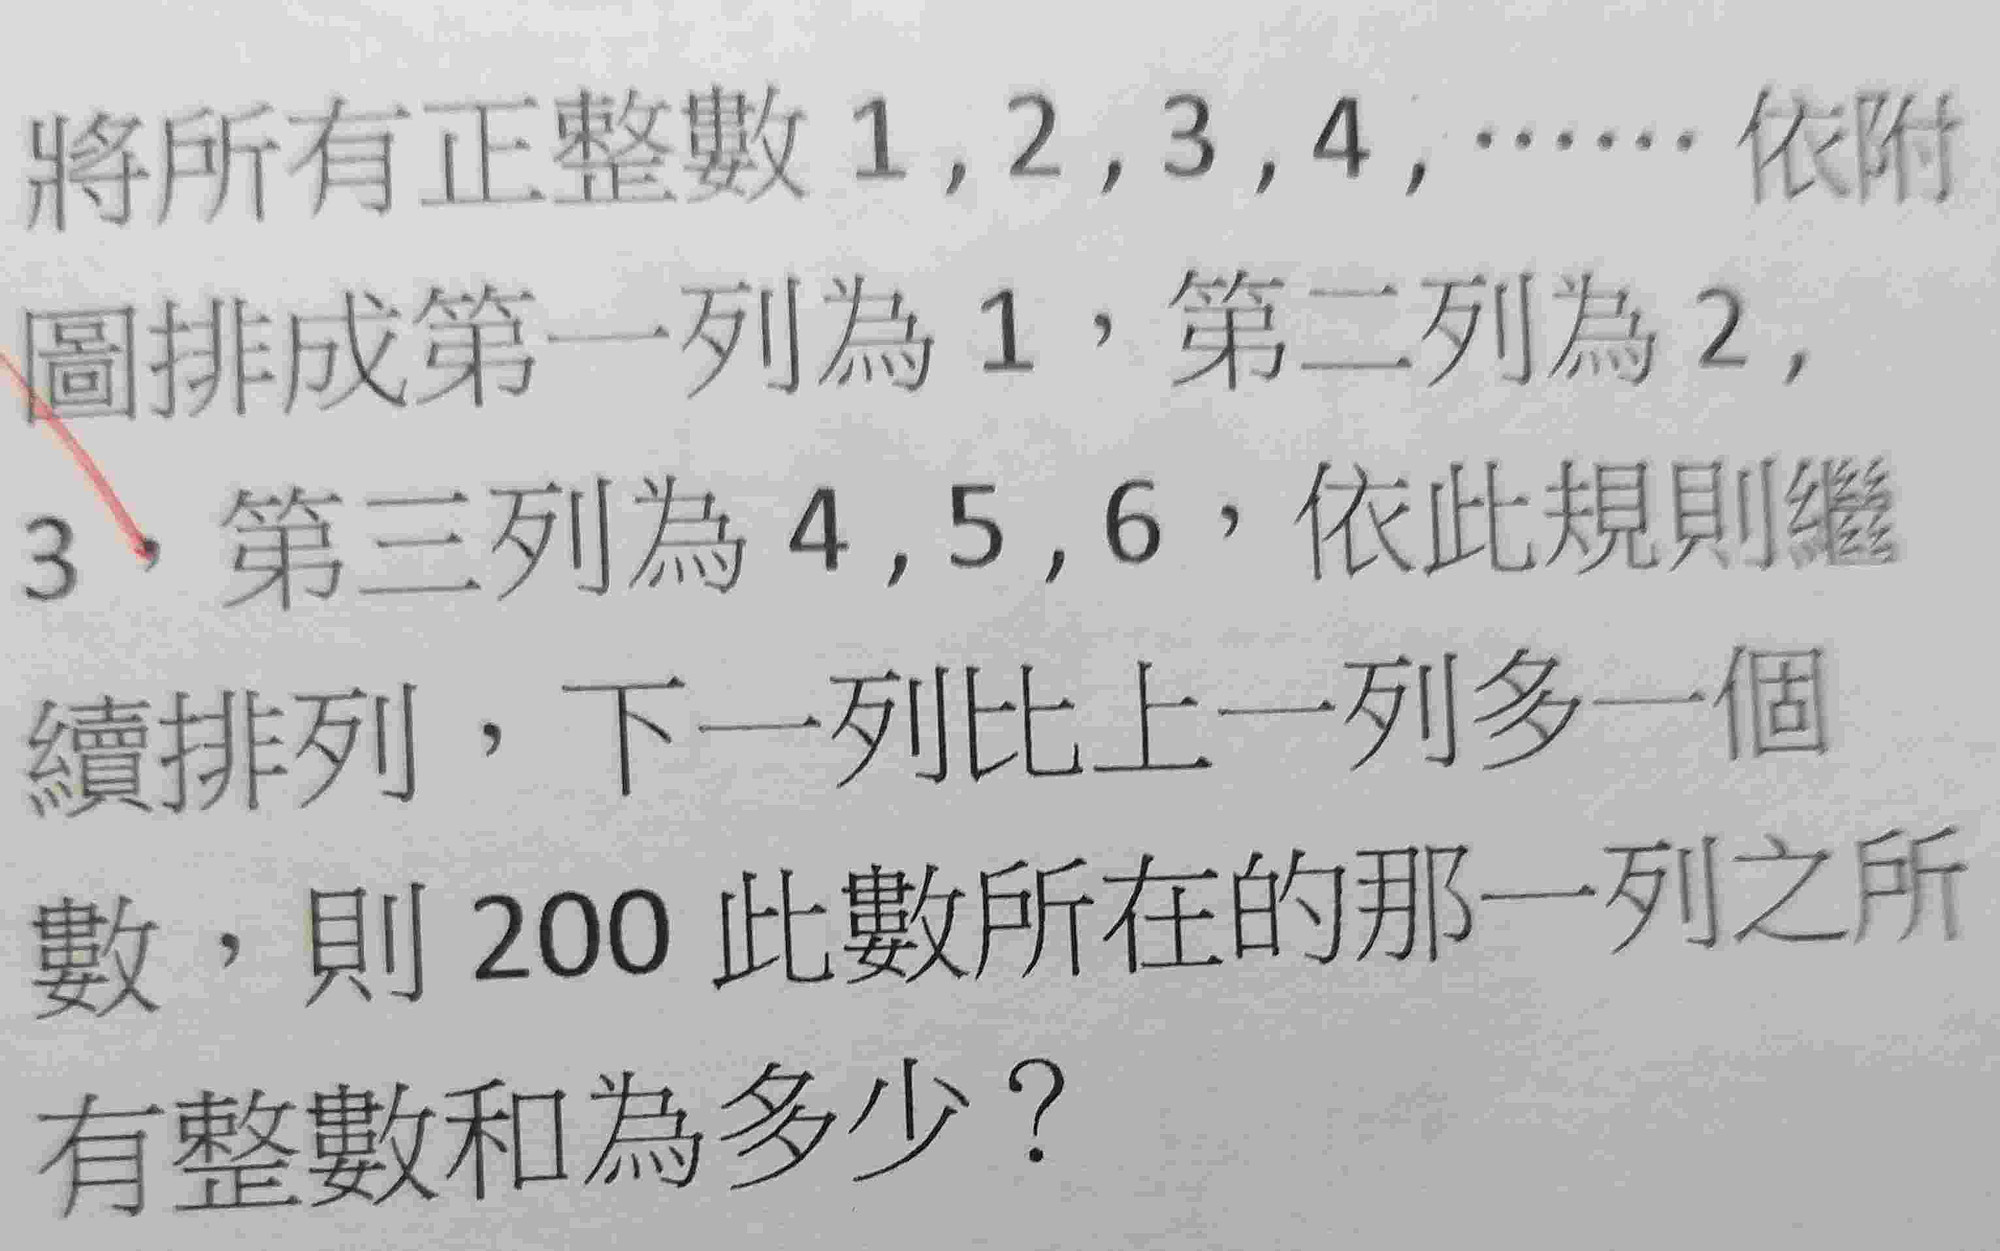 將所有正整數 1 , 2 , 3 , 4 , …… 依附
圖排成第一列為 1，第二列為 2 ,
3，第三列為 4 , 5 , 6，依此規則繼
續排列，下一列比上一列多一個
數，則 200 此數所在的那一列之所
有整數和為多少？